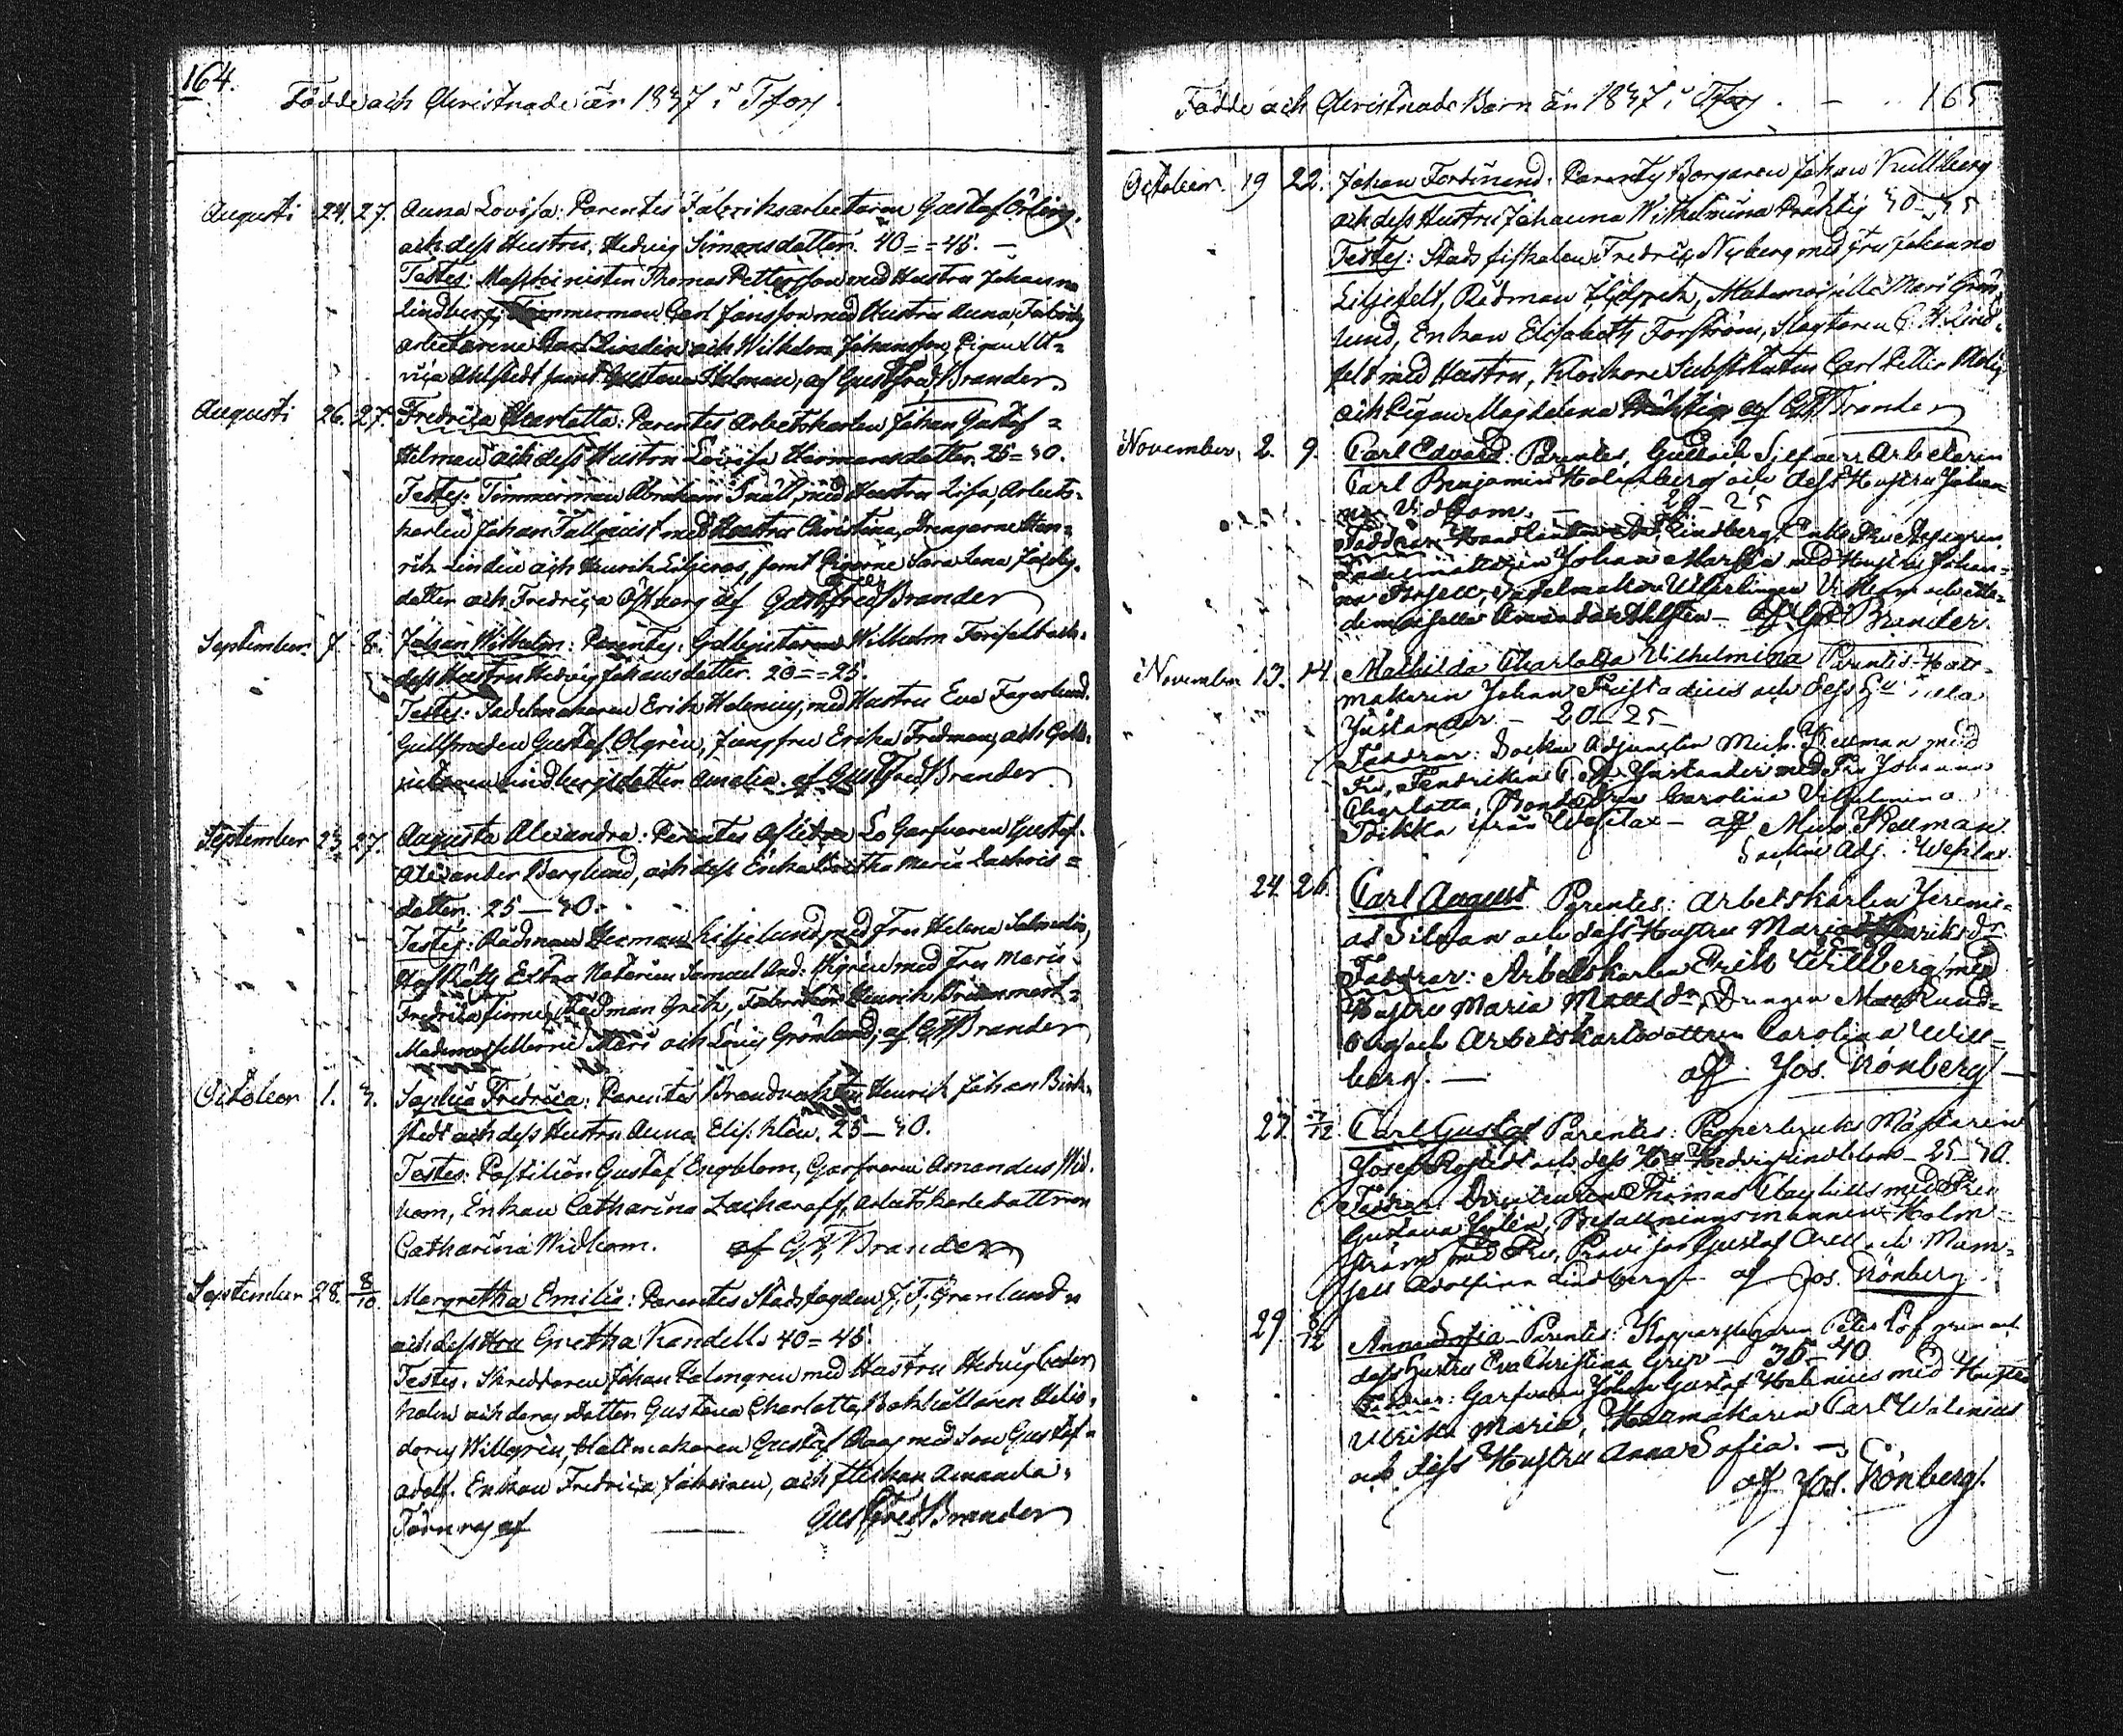 164.
Födde och Christnade år 1837 i Tfors.
Augusti 24. 27. Anna Lovisa: Parentes Fabriksarbetaren Gustaf
och dess Hustru, Hedvig Simonsdotter. 40 = = 45. —
Testes: Maschinisten Thomas Pettersson med Hustru Johanna
Lindberg, Timmerman Carl Jansson med Hustru Anna, Fabriks
arbetarene Carl Lindin och Wilhelm Johansson, Pigan Ul-
rica Ahlstedt samt Gustava Helman, af Gust. Fred. Brander.
Augusti 26. 27. Fredrica Charlotta: Parentes Arbetskarlen Johan Gustaf
Helman och dess Hustru Lovisa Hermansdotter. 25 = 30.
Testes: Timmerman Abraham Snäll, med Hustru Lisa, Arbets-
karlen Johan Tallquist med Hustru Christina, Drengarne Hen-
rik Lindin och Henrik samt Pigorne Sara Lena
dotter och Fredrica Östberg af Gust. Fred. Brander
September 7. 8. Johan Wilhelm: Parentes, Wilhelm och
dess Hustru Hedvig Johansdotter. 20 = = 25.
Testes: Sadelmakaren Erik Helenius, med Hustru Eva Fagerlund.
Gustaf Olgrén, Jungfru Erica Fredman, och
Lindbergs dotter Amalia. af Gust. Fred. Brander
September 23. 27. Augusta Alexandra: Parentes Aflidne Lo Garfvaren Gustaf
Alexander Berglund, och dess Enka Maria Zachris=
dotter. 25 — 30.
Testes: Rådman Herman Liljelund med Fru Helena
Hof Rätts Extra Notarien Samuel And. med Fru Maria
Fredrica Rådman Grek, Henrik
Mademoisellerne Mari och Lovis Grönlund; af G. F. Brander
October 1. 3. Sophia Fredrica: Parentes Brandvakten Henrik Johan Birk-
stedt och dess Hustru Anna Elis. Klew. 25 — 30.
Testes: Postilion Gustaf Engblom, Garfvaren Amandus Wid-
bom, Enkan Catharina Zacharoff, Arbetskarlsdottren
Catharina Widbom. af G. F. Brander
September 28. 8/10. Margretha Emilia: Parentes Stadsfogden J. F. Grönlund
och dess Hru Gretha Randell. 40 = 45.
Testes: Skreddaren Johan Holmgren med Hustru Hedvig Ceder
holm och deras dotter Gustava Charlotta, Bokhållaren Helio-
dorus Willgrén, Hattmakaren Gustaf Raas med Son Gustaf
Adolf. Enkan Fredrica och flickan Amanda
af — Gust. Fred. Brander
Födde och Christnade Barn år 1837 i Tfors. — 165
October 19 22. Johan Ferdinand: Parentes Borgaren Johan Kullberg
och dess Hustru Johanna Wilhelmina Präktig 30 - 35
Testes: Stads fiskalen Fredric Nyberg med fru Johanna
Liljefelt, Rådman Mademoiselle Mari Grön-
lund, Enkan Elisabeth Forström, Slagtaren C. H. Lind-
felt med Hustru, Klockare Substituten Carl Petter
och Pigan Magdalena Präktig af G. F. Brander
November, 2. 9. Carl Edvard: Parentes, Guld och Silfver Arbetaren
Carl Benjamin Holmberg och dess Hustru Johan-
na Widbom. — 20 - 25
Faddrar: Handlanden Lindberg, Enke Fru
Sadelmakaren Johan med Hustru Johan-
na Sadelmakare Wilhelm och Ma-
demoiselle Amanda af G. F. Brander.
November 13. 14. Mathilda Charlotta Vilhelmina Parentes Hatt-
makaren Johan Fristadius och dess Hu
Justander — 20 - 25
Faddrar: Sockne Adjuncten Mich. Hellman med
Fru, Fendriken C. A. Justander med Fru Johanna
Charlotta, Carolina Vilhelmina
Toikka ifrån Wehlax — af Mich. Hellman
Sockne Adj. i Wehlax
24. 26. Carl August Parentes: Arbetskarlen Jeremi-
as Silman och dess Hustru Maria Henriksdr
Faddrar: Arbetskarlen Erik Willberg med
Hustru Maria Matts dr, Drengen Matts Rund-
och Arbetskarlsdottren Carolina Will=
berg. — af. Jos. Grönberg
27. 7/12. Carl Gustaf Parentes: Papperbruks Mästaren
Josef och dess Hru Hedvig Lindblom — 25 - 30.
Faddrar: Directeuren Thomas Clayhills med Fru
Gustava Befallningsmannen Holm-
ström med Fru, Provisor Gustaf och Mam-
sell Adolfina Lindberg — af Jos. Grönberg
29. 8/12 Anna Sofia — Parentes: Kopparslagaren Peter Löfgren och
dess Hustru Eva Christina Grip — 35 - 40
Faddrar: Garfvaren Johan Gustaf Helenius med Hustru
Ulrika Maria, Hattmakaren Carl Walenius
och dess Hustru Anna Sofia. —
af Jos. Grönberg.